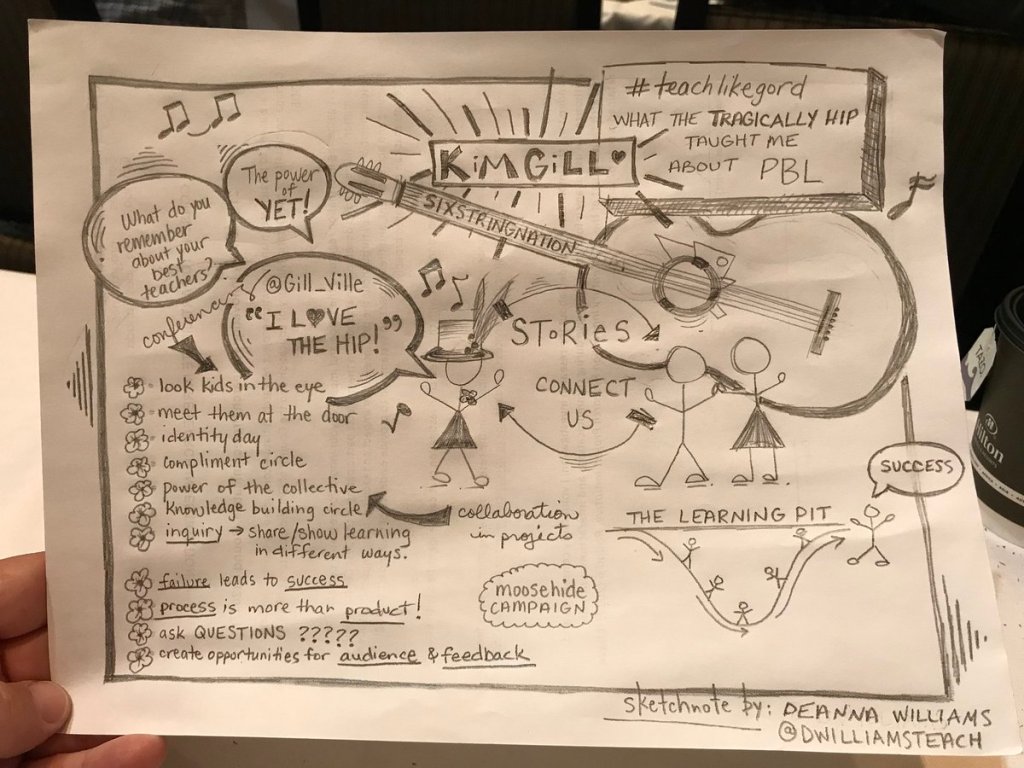 #teachlikegord
WHAT THE TRAGICALLY HIP
TAUGHT ME
ABOUT PBL
KiMGiLL
SIXSTRINGNATION
The power
of
YET!
What do you
remember
about your
best
teachers?
@Gill_Ville
"I LOVE
THE HIP!"
conference
STORiES
CONNECT
US
look kids in the eye
meet them at the door
identity day
compliment circle
power of the collective
Knowledge building circle
inquiry → share/show learning
in different ways.
collaboration
in projects
failure leads to success
process is more than product!
ask QUESTIONS ?????
create opportunities for audience & feedback
moosehide
CAMPAIGN
THE LEARNING PIT
SUCCESS
sketchnote by: DEANNA WILLIAMS
@DWILLIAMSTEACH